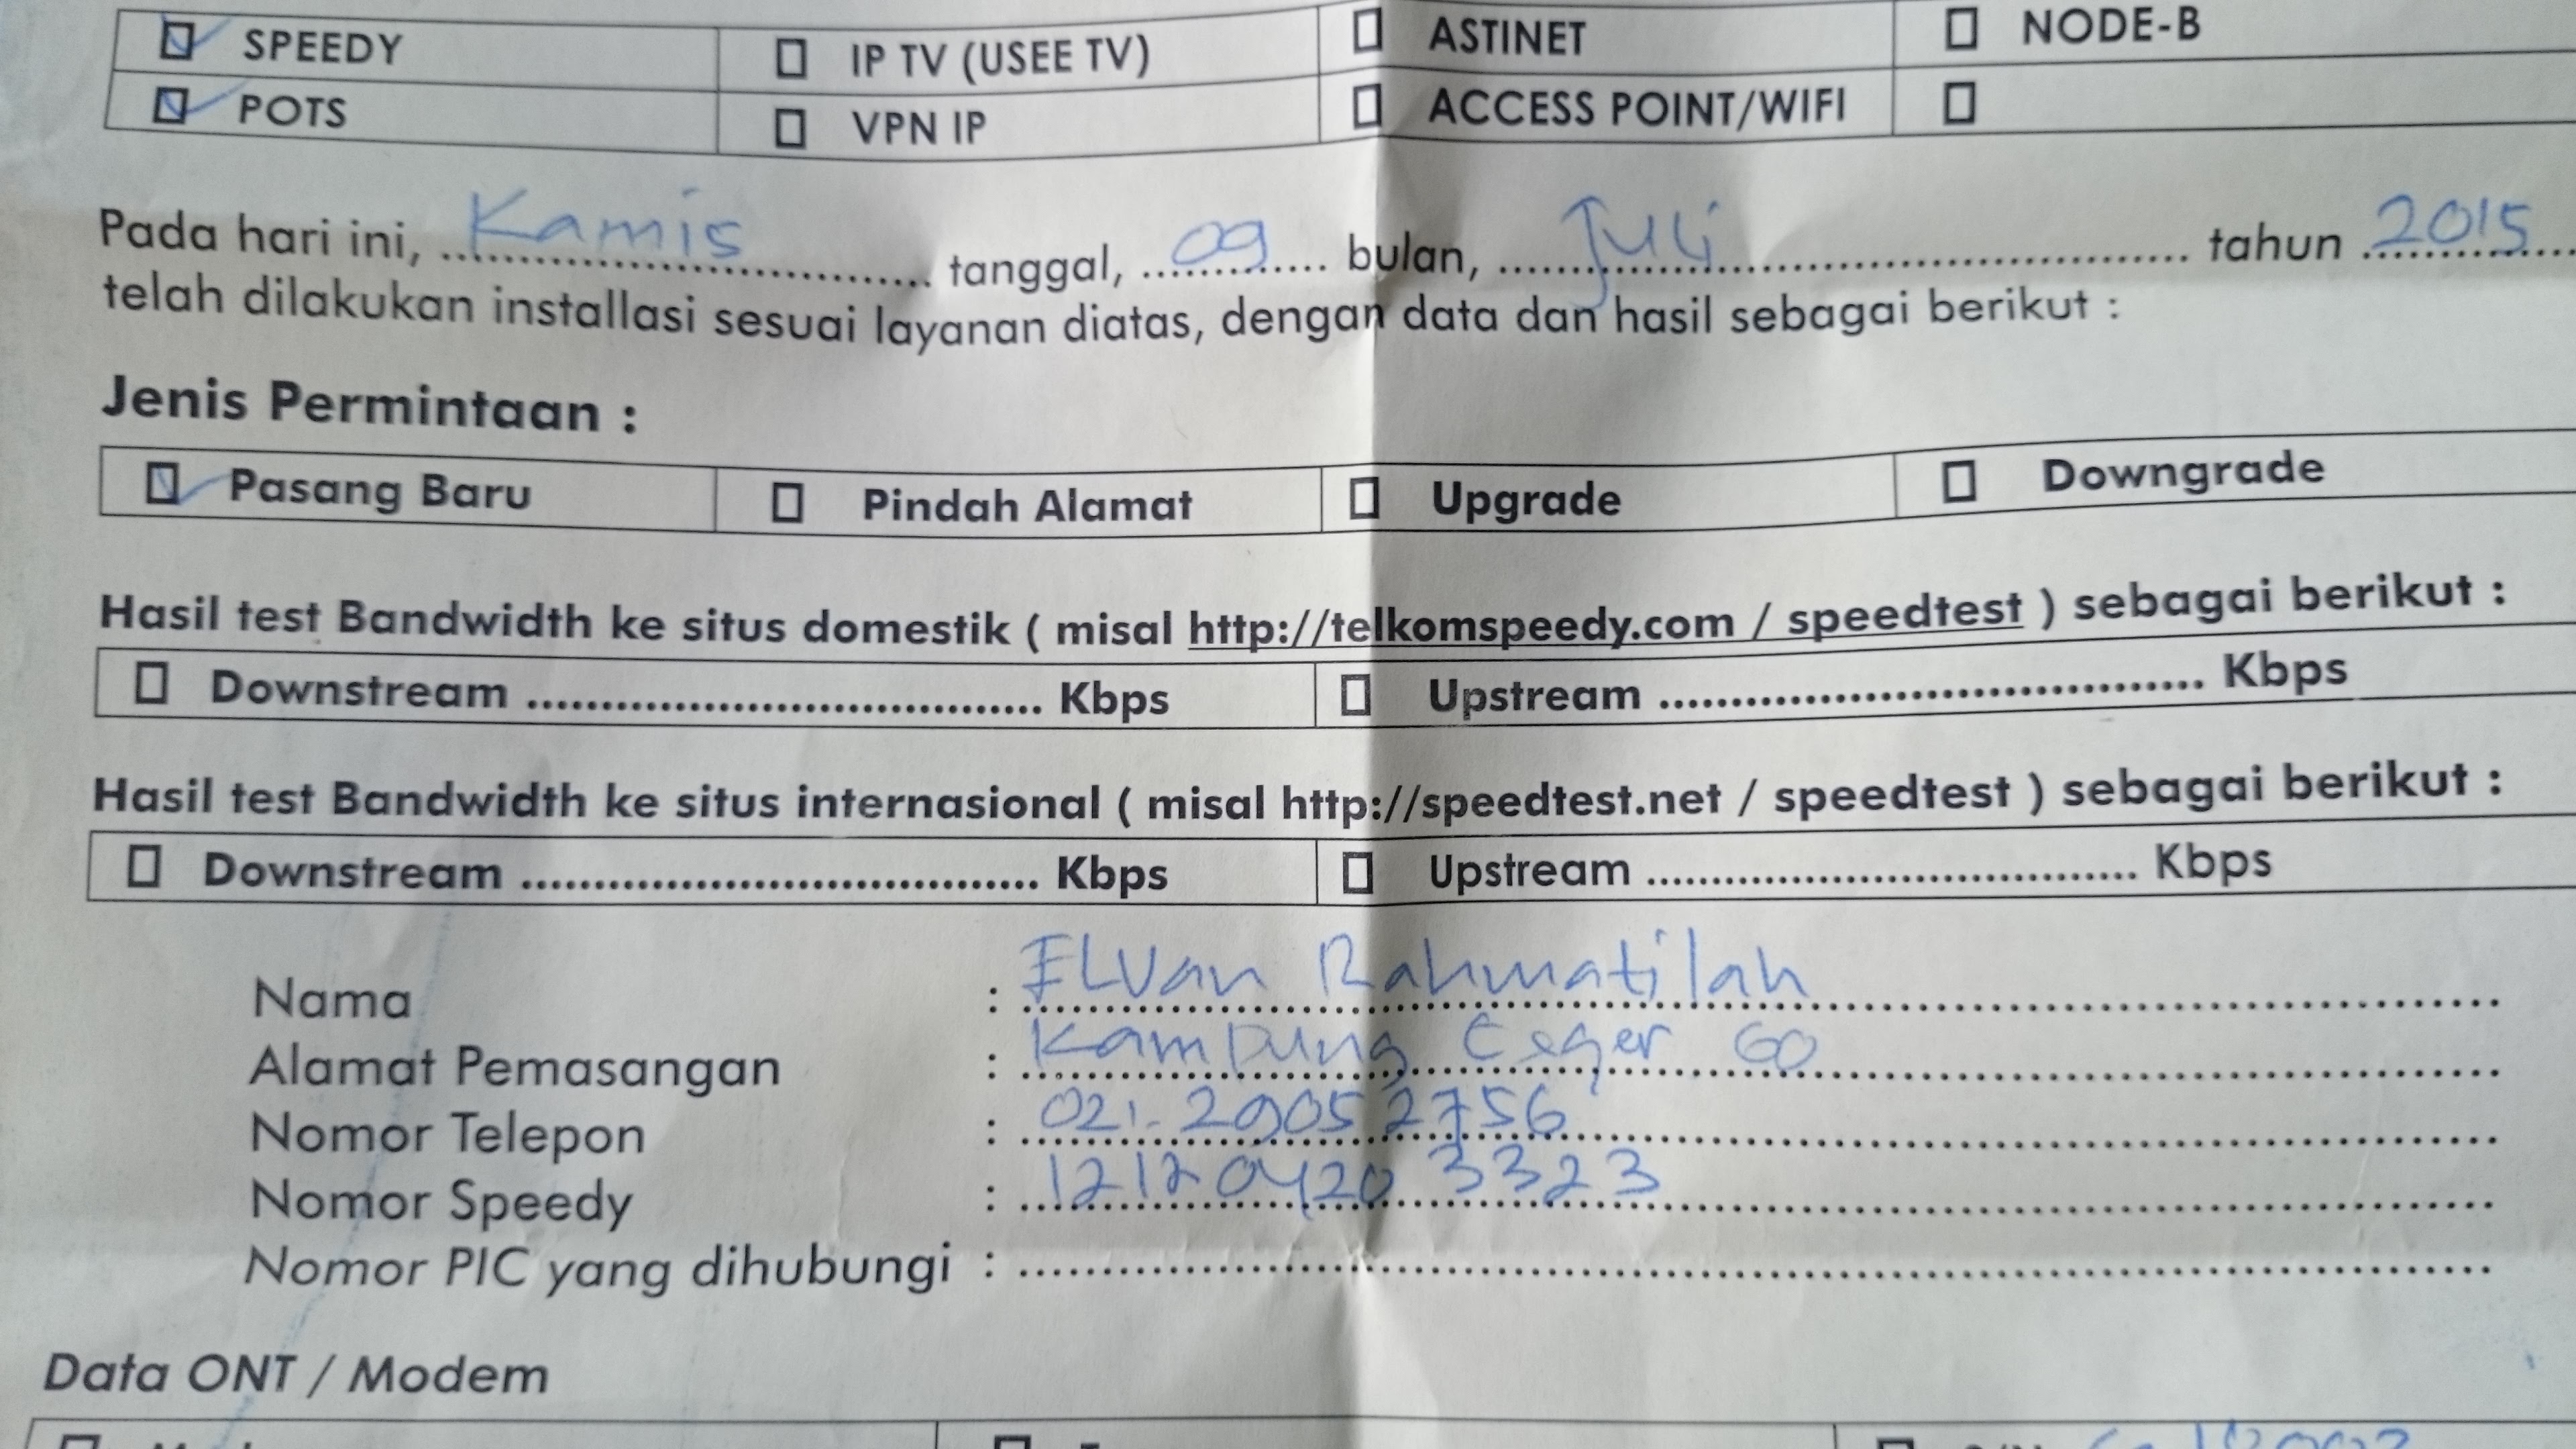 SPEEDY IP TV (USEE TV) ASTINET NODE-B
POTS VPN IP ACCESS POINT/WIFI
Pada hari ini, Kamis tanggal, 09 bulan, Juli tahun 2015
telah dilakukan installasi sesuai layanan diatas, dengan data dan hasil sebagai berikut :
Jenis Permintaan :
Pasang Baru Pindah Alamat Upgrade Downgrade
Hasil test Bandwidth ke situs domestik ( misal http://telkomspeedy.com / speedtest ) sebagai berikut :
Downstream .................................... Kbps Upstream .................................... Kbps
Hasil test Bandwidth ke situs internasional ( misal http://speedtest.net / speedtest ) sebagai berikut :
Downstream .................................... Kbps Upstream .................................... Kbps
Nama : Elvan Rahmatilah
Alamat Pemasangan : Kampung Ceger 60
Nomor Telepon : 021-29052756
Nomor Speedy : 121204203323
Nomor PIC yang dihubungi :
Data ONT / Modem